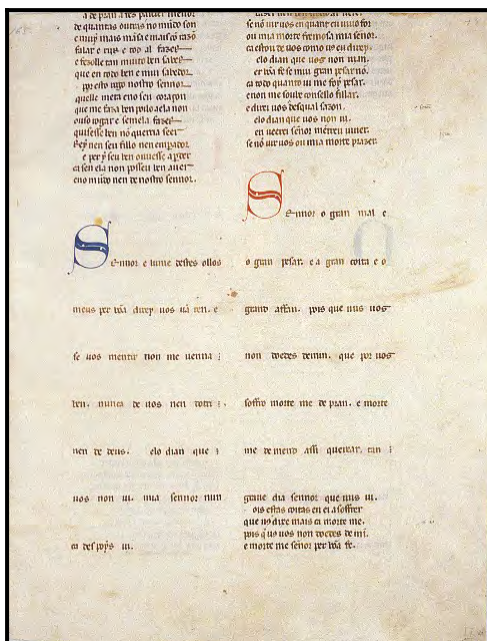 a de pran a tes pauer menor
de quantas outras no mūdo son
falar e riir e tod al fazer
e fezolle tan muito ben saber
que en todo ben e mui sabedor
por esto rogo nostro sennor
quelle meta eno seu coraçon
que me faza ben poilo a ela non
ouso rogar e se mela fazer
quisesse ben nō querria seer
Rey nen seu fillo nen emperador
e per y seu ben ouuesse a perder
ca sen ela non posseu ben auer
eno mūdo nen de nostro sennor.
S
Ennor e lume destes ollos
meus per bōa direy uos ūa ren. e
se uos mentir non me uenna
ben. nunca de uos nen
nen de deus. elo dian que
uos non ui. mia sennor nun
ca despoys ui.
ou mia morte fremosa mia senor.
ca estou de uos como uos eu direy.
elo dian que uos non uir.
er bōa fe se mia gran pesar nō.
ca todo quanto ui me foy pesar.
e non me soube consello fillar.
e direi uos desqual sazon.
elo dian que uos non ui.
en ueerei senor mentreu uiuer.
se nō uir uos ou mia morte prazer.
S
Ennor o gran mal e
o gran pesar. e a gran coita e o
grand affan. pois que uus uos
non doedes demin. que por uos
soffro morte me de pran. e morte
me de meno assi queixar. tan
graue dia sennor que uus ui.
ois estas coitas en ei a soffrer
que uos direi mais ca morte me.
pois q̄ uos uos non doedes de mi.
e morte me señor per bōa fe.